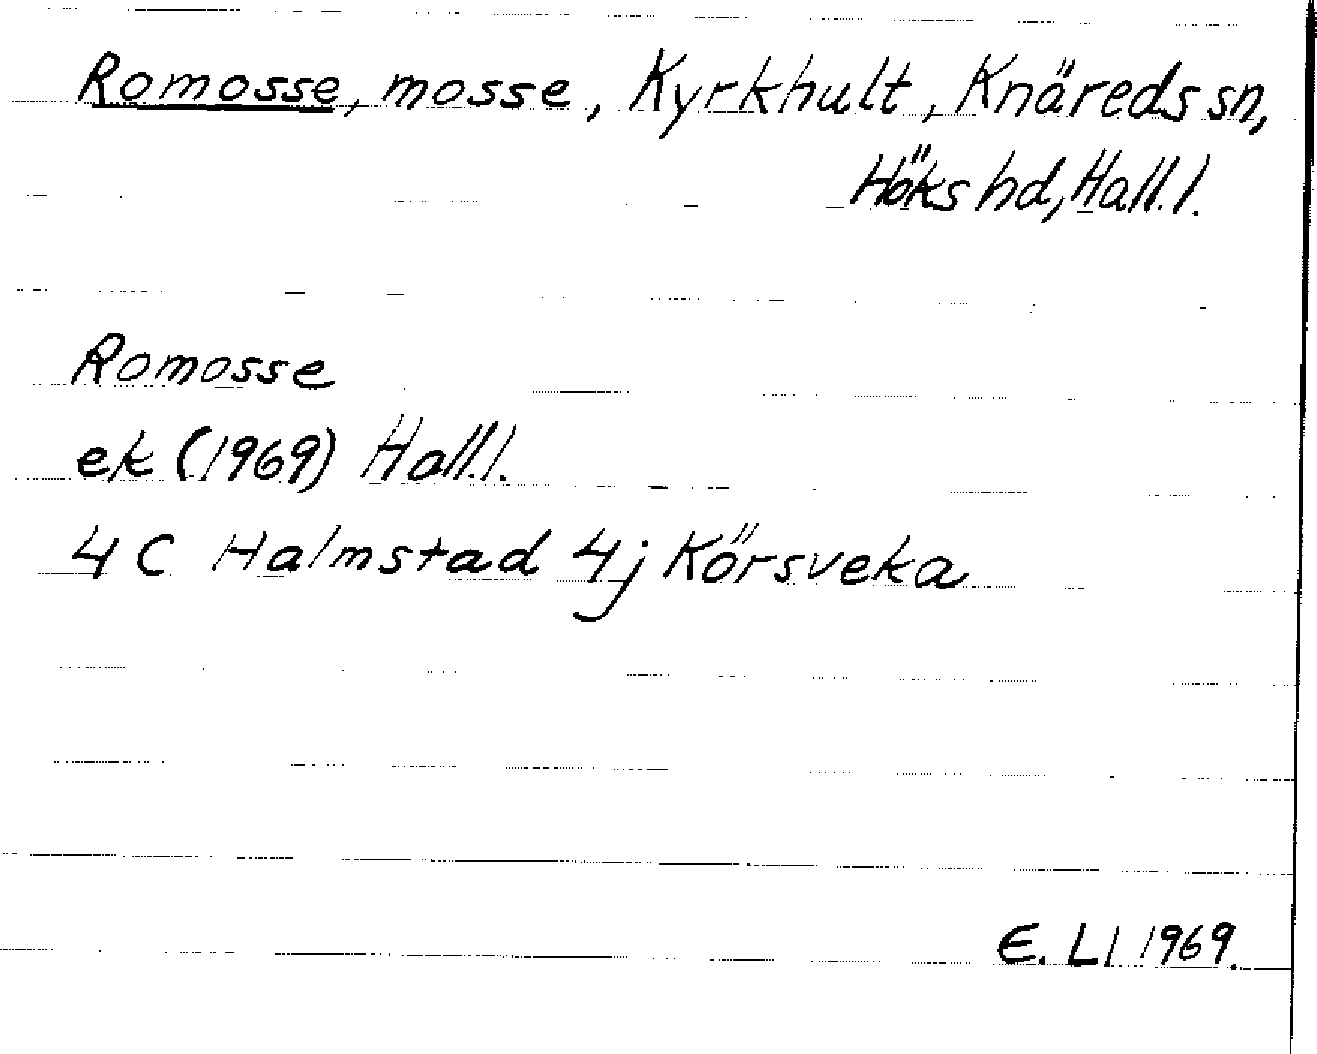 Romosse, mosse, Kyrkhult, Knäreds sn,
Höks hd, Hall.l.
Romosse
ek (1969) Hall.l.
4 C Halmstad 4j Körsveka
E. Ll 1969.